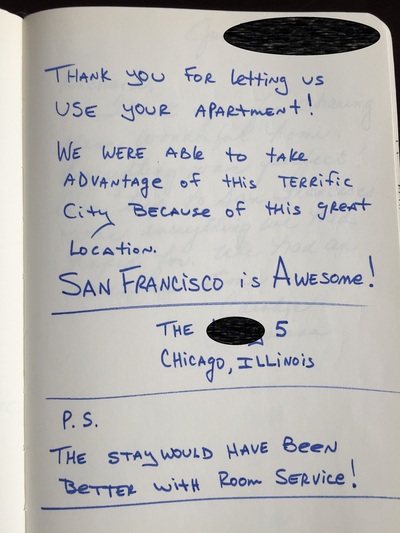 Thank you for letting us
use your apartment!
We were able to take
advantage of this terrific
city because of this great
location.
San Francisco is Awesome!
The 5
Chicago, Illinois
P.S.
The stay would have been
better with Room Service!